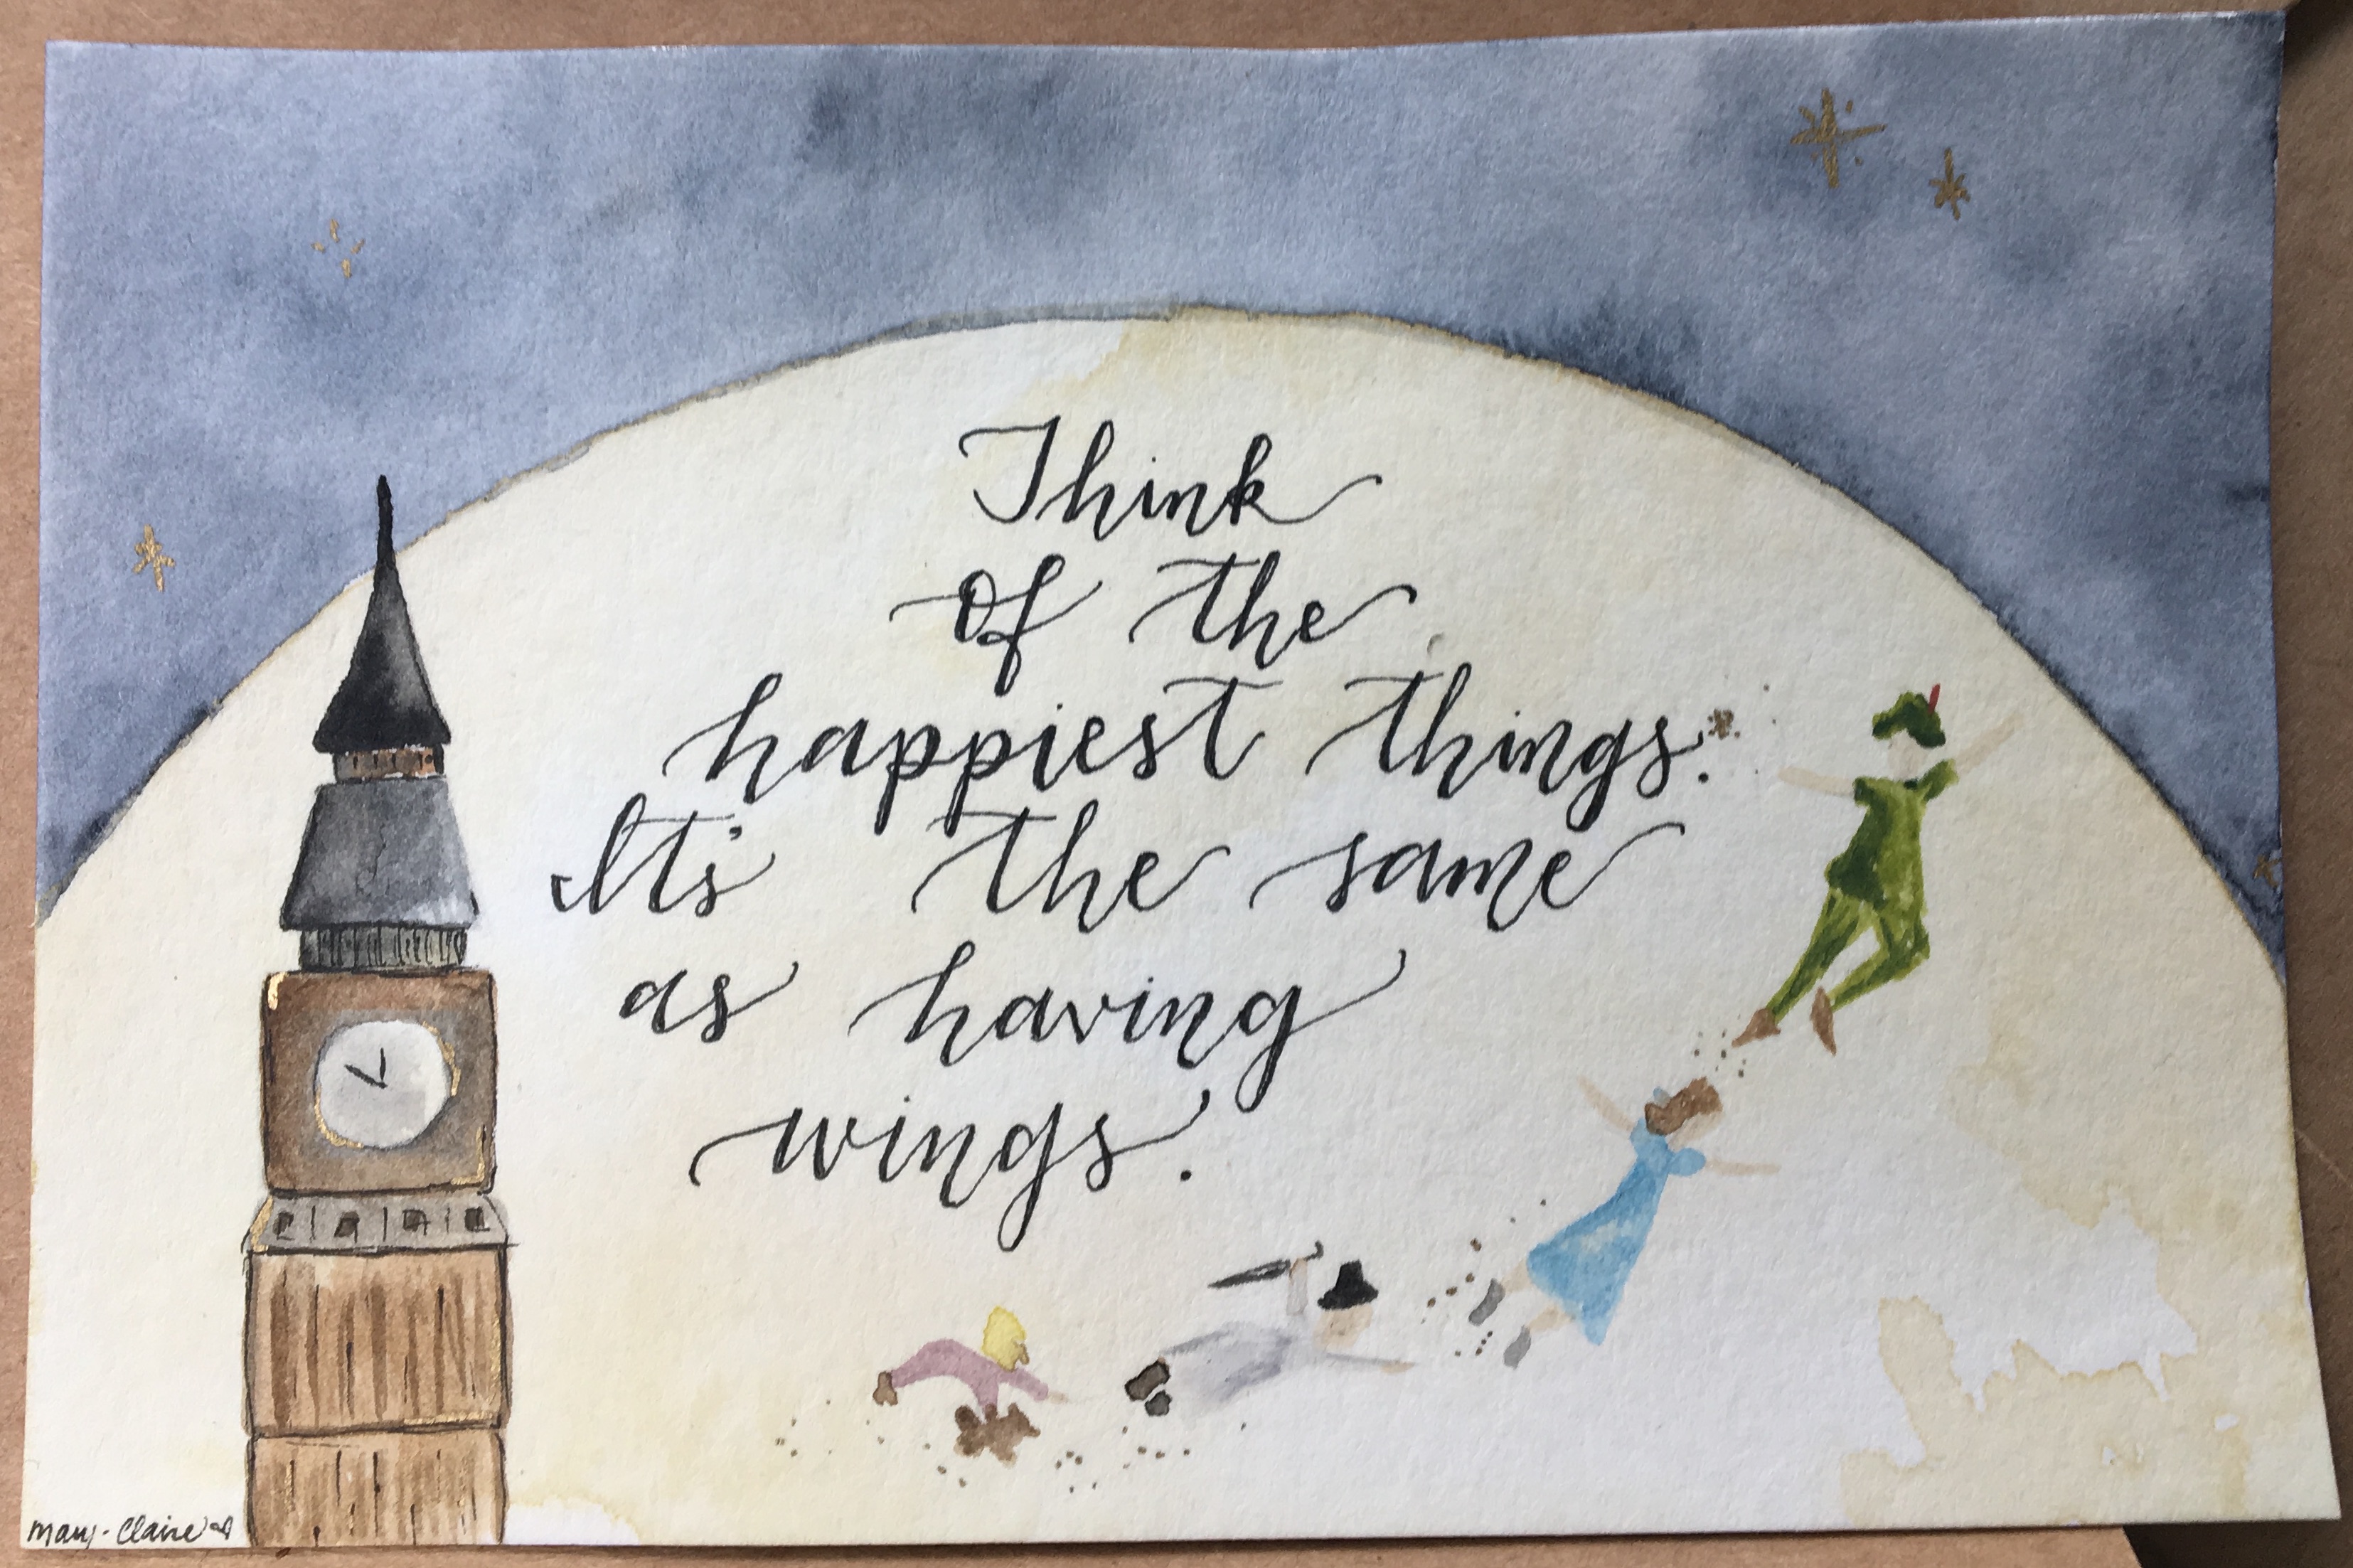 Think
of the
happiest things.
It's the same
as having
wings.
Mary-Claire